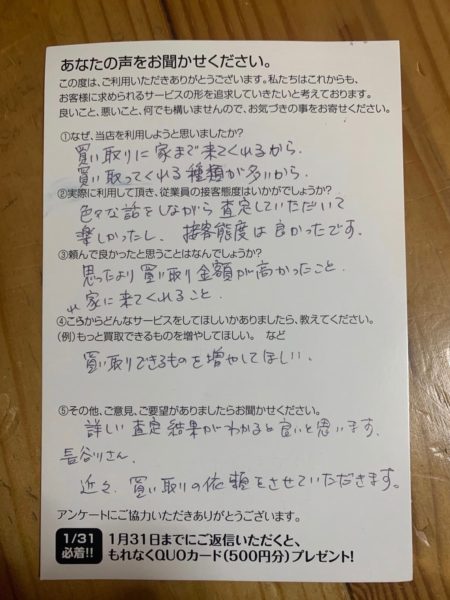 あなたの声をお聞かせください。
この度は、ご利用いただきありがとうございます。私たちはこれからも、
お客様に求められるサービスの形を追求していきたいと考えております。
良いこと、悪いこと、何でも構いませんので、お気づきの事をお寄せください。
①なぜ、当店を利用しようと思いましたか?
買い取りに家まで来てくれるから。
買い取ってくれる種類が多いから。
②実際に利用して頂き、従業員の接客態度はいかがでしょうか?
色々な話をしながら査定していただいて
楽しかったし、接客態度は良かったです。
③頼んで良かったと思うことはなんでしょうか?
思ったより買い取り金額が高かったこと。
家に来てくれること。
④こらからどんなサービスをしてほしいかありましたら、教えてください。
(例)もっと買取できるものを増やしてほしい。 など
買い取りできるものを増やしてほしい。
⑤その他、ご意見、ご要望がありましたらお聞かせください。
詳しい査定結果がわかると良いと思います。
長谷川さん、
近々、買い取りの依頼をさせていただきます。
アンケートにご協力いただきありがとうございます。
1/31
必着!!
1月31日までにご返信いただくと、
もれなくQUOカード(500円分)プレゼント!